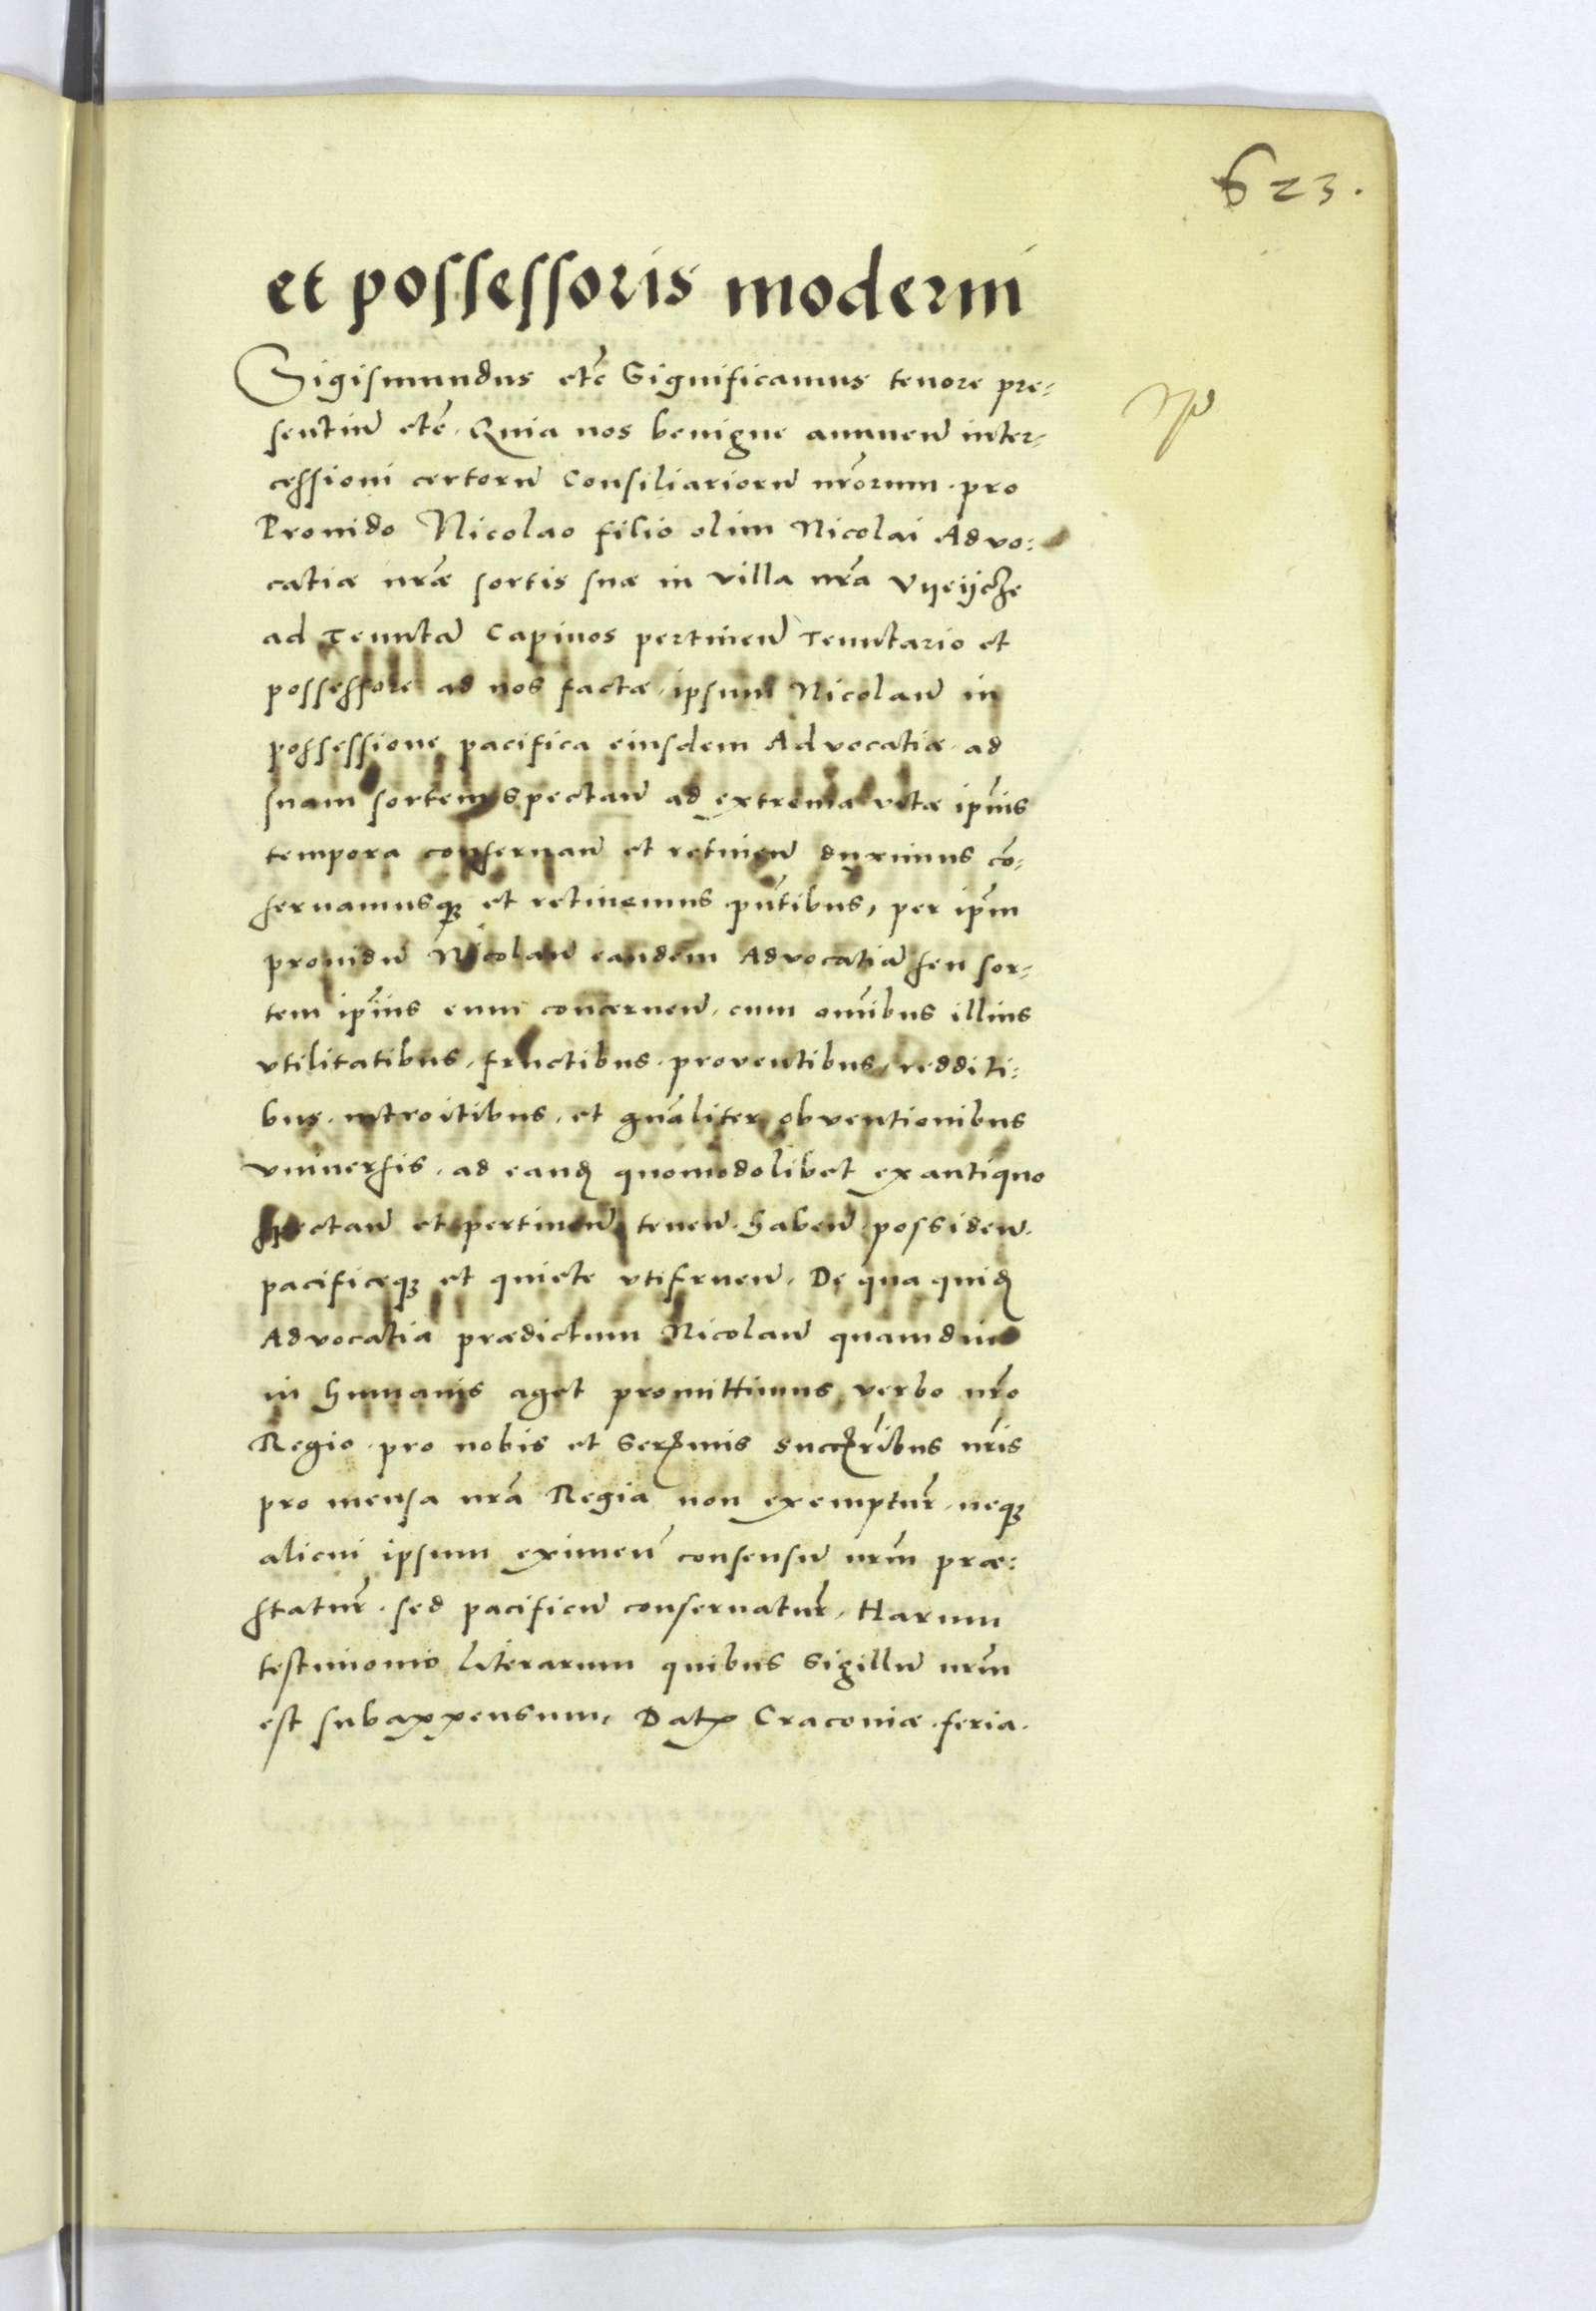 623.
et possessoris moderni
Sigismundus etc̄ Significamus tenore pre-
sentiu̅ etc̄. Quia nos benigne annuen̅ inter-
cessioni certoru̅ Consiliarioru̅ nr̅orum. pro
Prouido Nicolao filio olim Nicolai Advo-
catiæ nr̅æ sortis suæ in villa nr̅a
ad Tenuta̅ Capinos pertinen̅ Tenutario et
possessore ad nos factæ, ipsum Nicolau̅ in
possessione pacifica eiusdem Advocatiæ. ad
suam sortem spectan̅ ad extrema vitæ ip̅ius
tempora conseruan̅ et retinen̅ duximus co̅-
seruamusq3 et retinemus pn̅tibus, per ip̅m
prouidu̅ Nicolau̅ eandem Advocatia̅ seu sor-
tem ip̅ius eum concernen̅, cum om̅ibus illius
vtilitatibus, fructibus. proventibus, redditi-
bus. introitibus. et gn̅aliter obventionibus
vniuersis. ad eand̅ quomodolibet ex antiquo
spectan̅ et pertinen̅ tenen̅. haben̅. possiden̅.
pacificeq3 et quiete vtifruen̅. De qua quid̅
Advocatia prædictum Nicolau̅ quamdiu
in humanis aget promittimus verbo nr̅o
Regio. pro nobis et Ser̅mis succr̅ibus nr̅is
pro mensa nr̅a Regia non exemptur̅, neq3
alicui ipsum eximen̅ consensu̅ nr̅m præ-
statur̅. sed pacificu̅ conseruatur̅. Harum
testimonio literarum quibus Sigillu̅ nr̅m
est subappensum, Dat̅ Cracouiæ. feria.